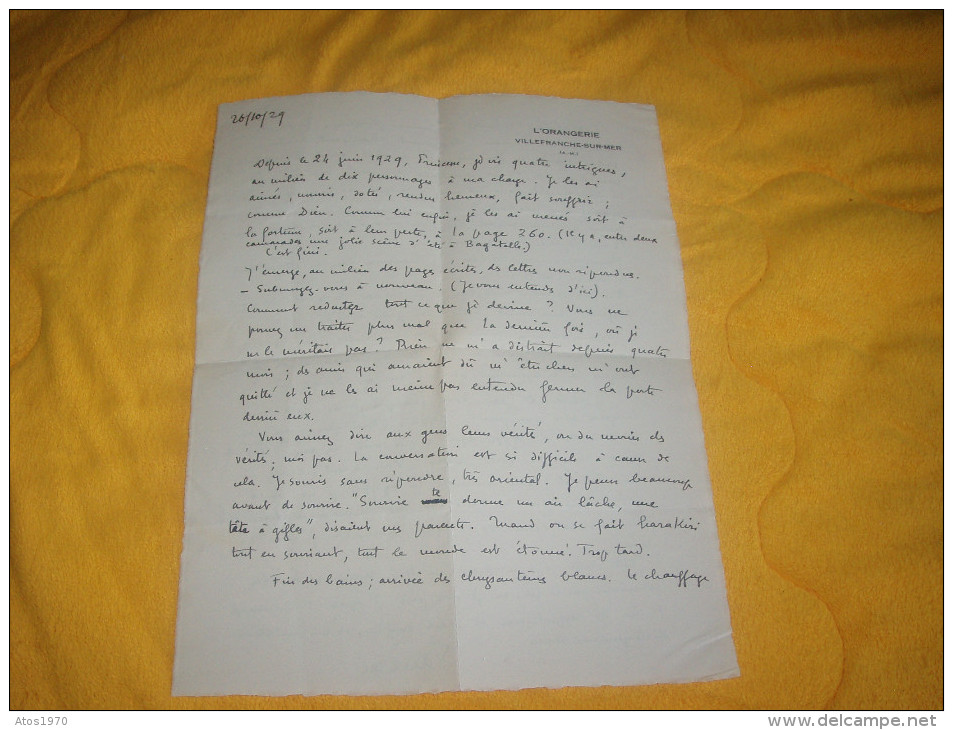 26/10/29
L'ORANGERIE
VILLEFRANCHE-SUR-MER
(A.-M.)
Depuis le 24 juin 1929, Princesse, je vis quatre intrigues,
au milieu de dix personnages à ma charge. Je les ai
aimés, nourris, dotés, rendus heureux, fait souffrir ;
comme Dieu. Comme lui enfin, je les ai menés soit à
la fortune, soit à leur perte, à la page 260. (Il y a, entre deux
camarades une jolie scène d'été à Bagatelle.)
C'est fini.
J'émerge, au milieu des pages écrites, des lettres non répondues.
– Submergez-vous à nouveau. (Je vous entends d'ici).
Comment redouter tout ce que je devine ? Vous ne
pouvez me traiter plus mal que la dernière fois, où je
ne le méritais pas ? Rien ne m'a distrait depuis quatre
mois ; des amis qui auraient dû m'être chers m'ont
quitté et je ne les ai même pas entendu fermer la porte
derrière eux.
Vous aimez dire aux gens leurs vérités, ou du moins des
vérités ; moi pas. La conversation est si difficile à cause de
cela. Je souris sans répondre, très oriental. Je pense beaucoup
avant de sourire. "Sourire te donne un air lâche, une
tête à gifles", disaient mes parents. Quand on se fait harakiri
tout en souriant, tout le monde est étonné. Trop tard.
Fin des bains ; arrivée des chrysantèmes blancs. Le chauffage
Atos1970
www.delcampe.net